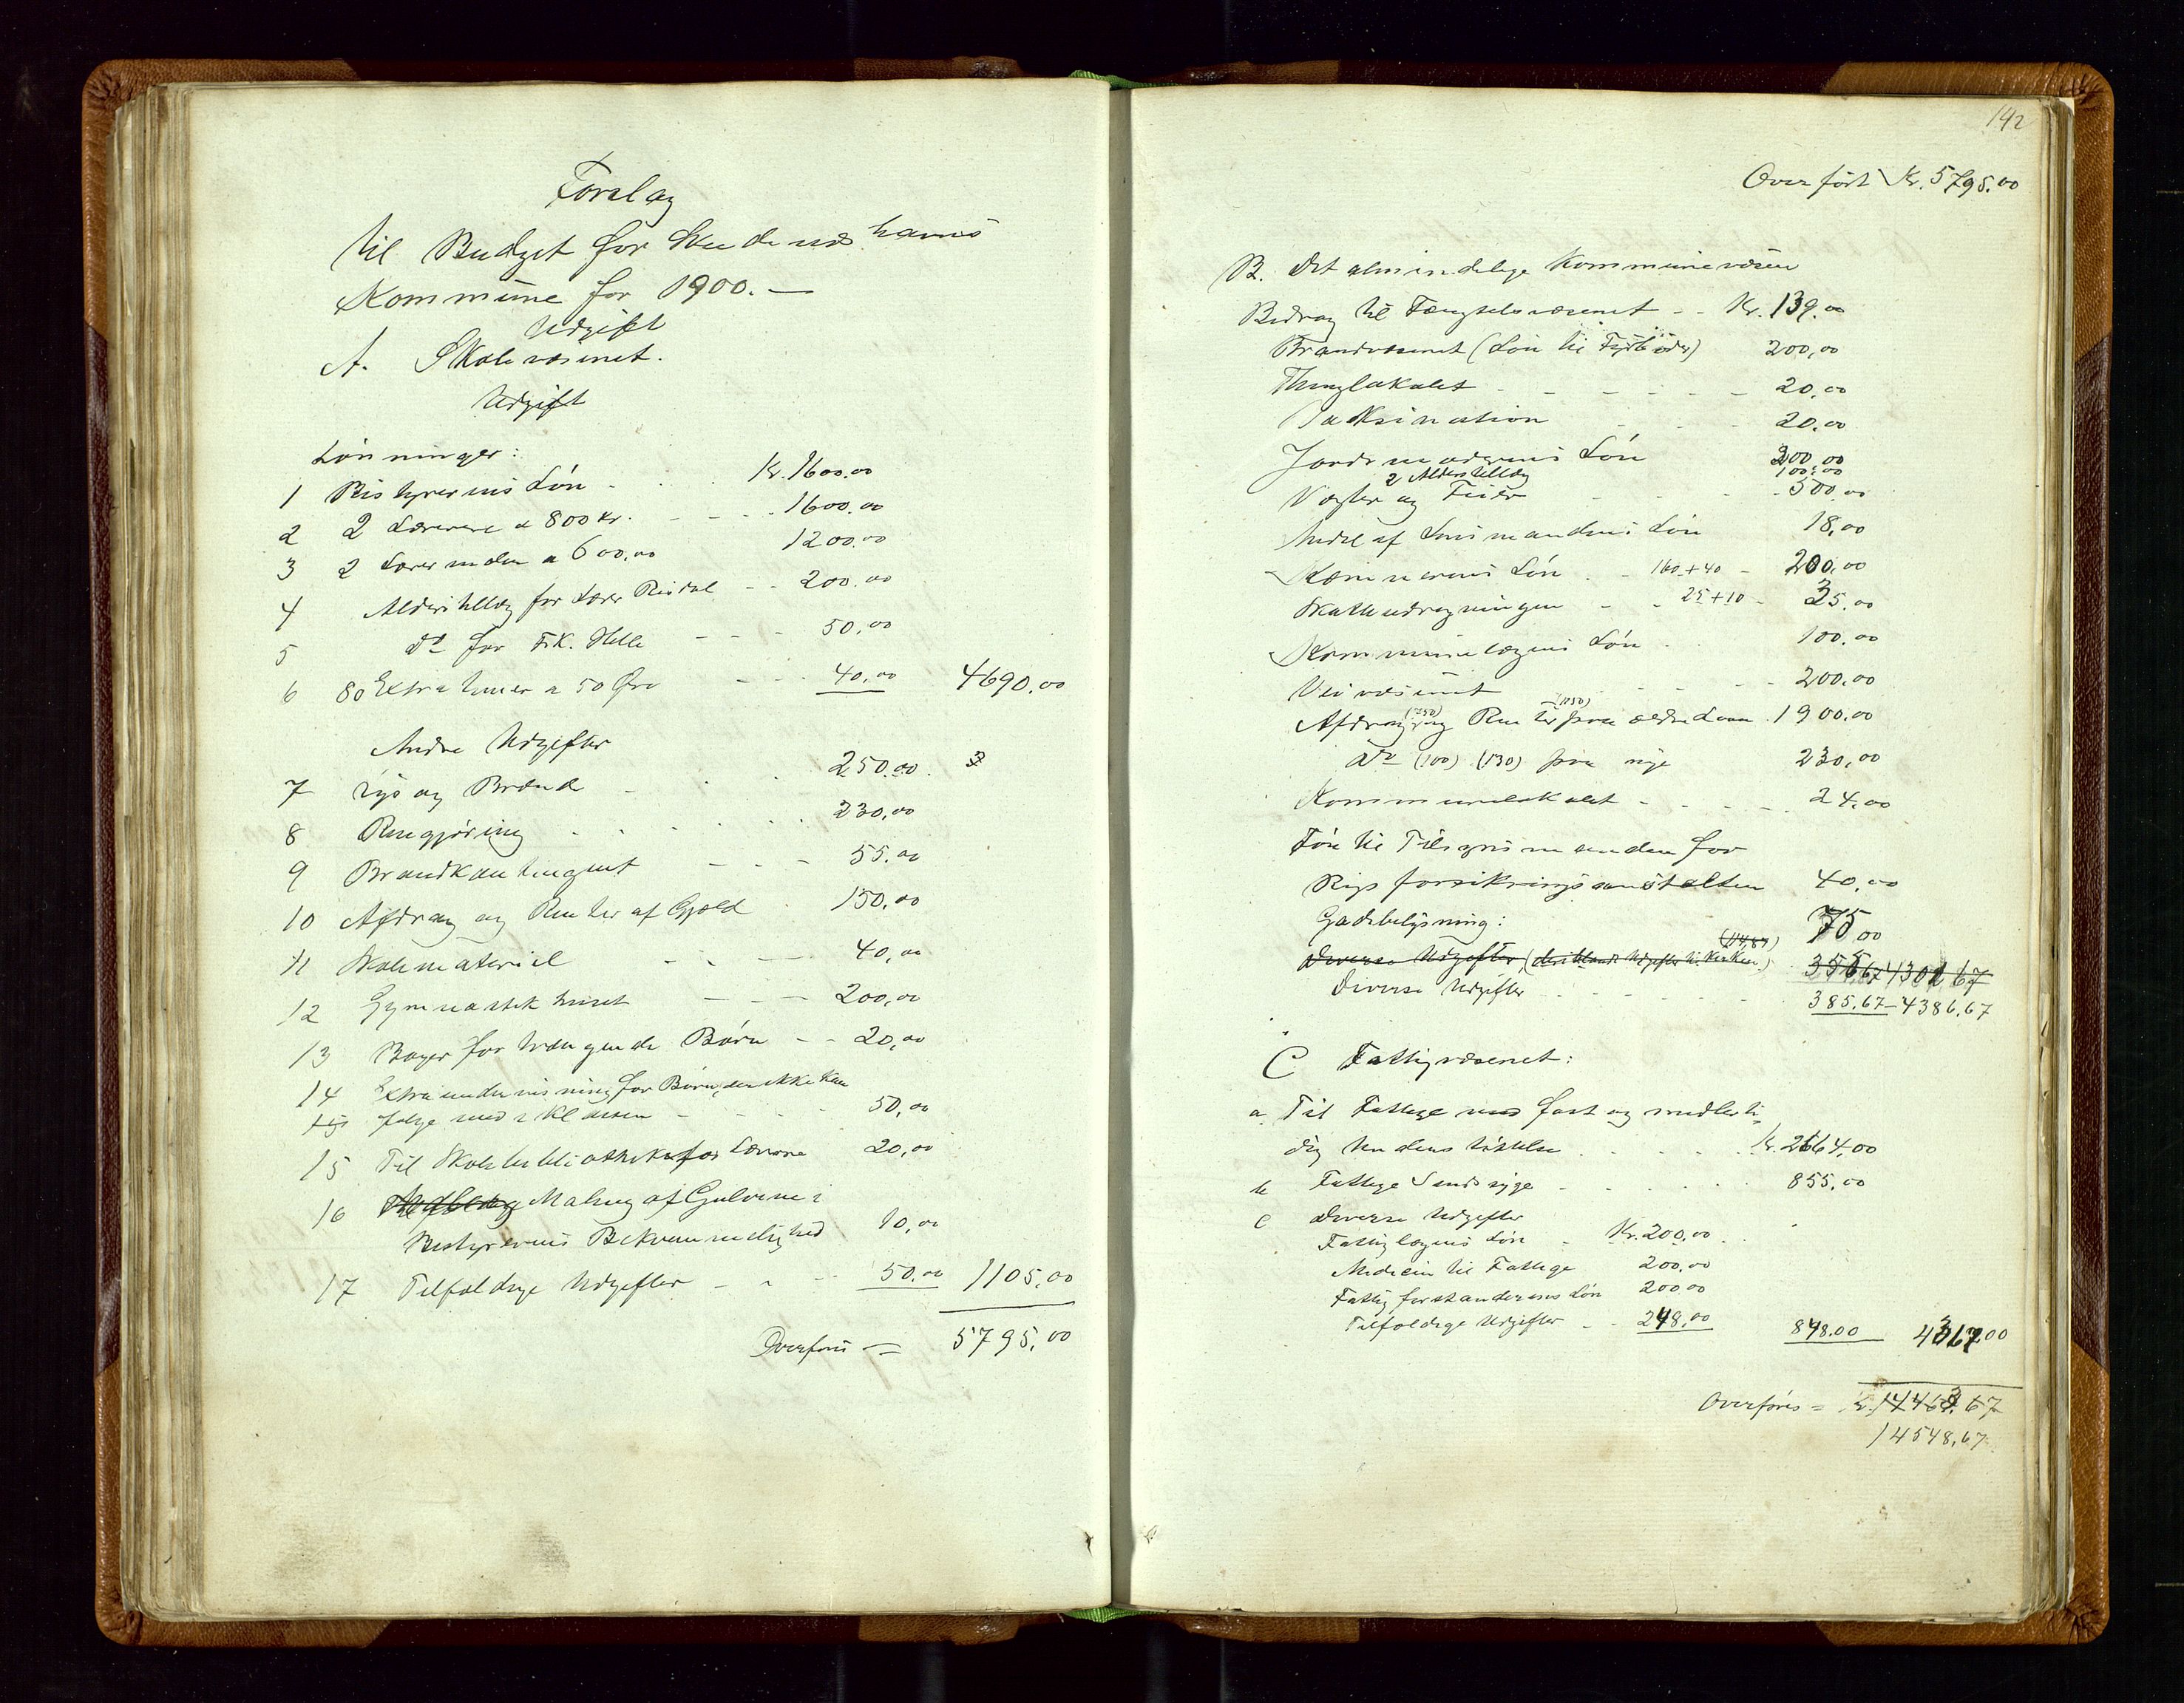 Forslag
til Budget for Skudeneshavns
Kommune for 1900. —
Udgift
A. Skolevæsenet.
Udgift
Lønninger:
1 Bestyrerens Løn - Kr. 1600.00
2 2 Lærerne a 800 kr. - - - 1600.00
3 2 Lærerinder a 600,00 1200.00
4 Alderstillæg for Lærer - - 200.00
5 do for Frk. Helle - - - 50,00
6 80 Extratimer a 50 Øre - - - 40,00 4690,00
Andre Udgifter
7 Lys og Brænde - - - 250.00. 3
8 Rengjøring - - - 230,00
9 Brandkontingent - - - 55.00
10 Afdrag og Renter af Gjæld 150,00
11 Skolemateriel - - - 40,00
12 Gymnastikhuset - - - 200,00
13 Bøger for trængende Børn - - 20,00
14 Extraundervisning for Børn, der ikke kan
15 følge med i Klassen - - - 50,00
15 Til Skolebibliothek for Lærerne 20,00
16 Maling af Gulvene i
Bestyrerens Bekvemmelighed 10,00
17 Tilfældige Udgifter - - - 50.00 1105,00
Overføres = 5795,00
142
Overført Kr. 5795.00
B. Det almindelige Kommunevæsen
Bidrag til Fængselsvæsenet - - Kr. 139.00
Brandvæsenet (Løn til Fyrbøder) 200,00
Thinglokalet - - - - - 20,00
Vaksination - - - 20.00
Jordmoderens Løn 200,00
2 Alderstillæg 100,00
Vægter og Feier - - - 500,00
Andel af Lensmandens Løn 18,00
Kæmnerens Løn - - 160+40 - 200,00
Skatteudregningen - - 25+10 - 35,00
Kommunelægens Løn - 100.00
Veivæsenet - - - 200.00
Afdrag (750) og Renter (1150) paa ældre Laan 1900.00
do (100) (130) paa nye 230,00
Kommunelokalet - - - - 24,00
Løn til Tilsynsmanden for
Rigsforsikringsanstalten 40,00
Gadebelysning: 75,00
Diverse Udgifter, (deriblandt Udgifter til Kirken)
Diverse Udgifter - - - - - 385,67 - 4386,67
C Fattigvæsenet:
a. Til Fattige med fast og midlerti-
dig Understøttelse - - - Kr. 2664,00
b Fattige Sindssyge - - - 855,00
c Diverse Udgifter
Fattiglægens Løn - Kr. 200,00
Medicin til Fattige 200,00
Fattigforstanderens Løn 200.00
Tilfældige Udgifter - - 248,00 848.00 4367,00
Overføres = Kr. 14463,67
14548,67